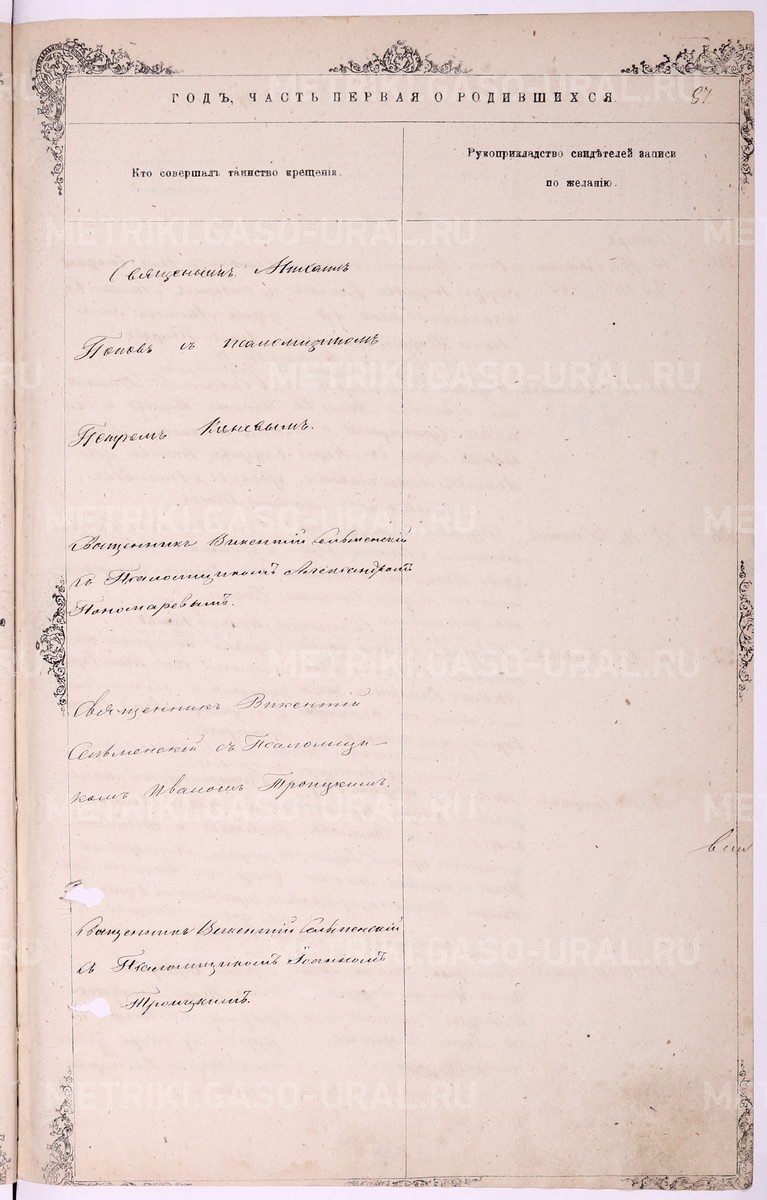 ГОДЪ, ЧАСТЬ ПЕРВАЯ О РОДИВШИХСЯ.
Кто совершалъ таинство крещенія.
Рукоприкладство свидѣтелей записи
по желанію.
Священникъ Михаилъ
Поповъ съ псаломщикомъ
Петромъ
Священникъ Викентій Сельменскій
съ Псаломщикомъ Александромъ
Пономаревымъ.
Священникъ Викентій
Сельменскій съ Псаломщи-
комъ Иваномъ Троицкимъ.
Священникъ Викентій Сельменскій
съ Псаломщикомъ Іоанномъ
Троицкимъ.
METRIKI.GASO-URAL.RU